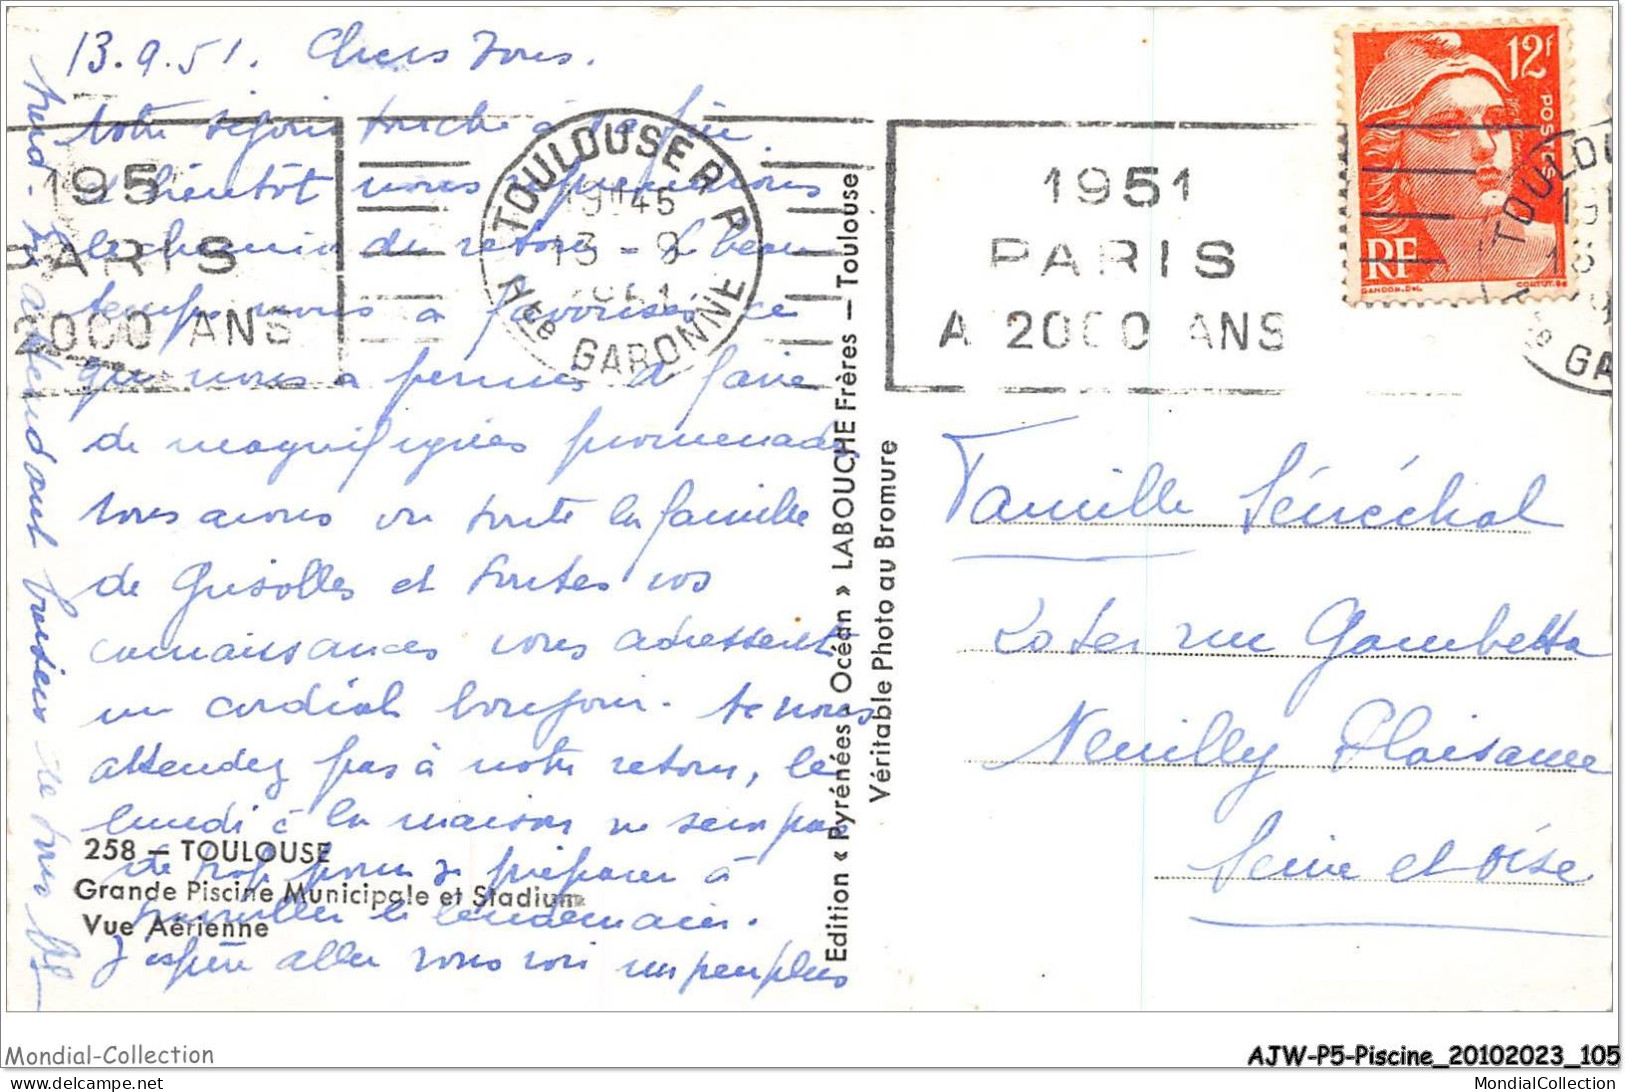 13.9.51. Chers Tous.
Notre séjour touche à sa fin
et bientôt nous reprendrons
le chemin du retour. Le beau
temps nous a favorisés ce
qui nous a permis de faire
de magnifiques promenades
nous avons vu toute la famille
de Grisolles et toutes vos
connaissances vous adressent
un cordial bonjour. Ne nous
attendez pas à notre retour, le
lundi à la maison ne sera pas
de trop pour se préparer à
travailler le lendemain.
J'espère aller vous voir un peu plus
tard. En attendant baisers de tous
258 — TOULOUSE
Grande Piscine Municipale et Stadium
Vue Aérienne
195
PARIS
2000 ANS
TOULOUSE R.P.
19H45
13 - 9
1951
Hte GARONNE
Edition « Pyrénées - Océan » LABOUCHE Frères — Toulouse
Véritable Photo au Bromure
1951
PARIS
A 2000 ANS
12f
POSTES
RF
GANDON.DEL.
CORTOT.SC
TOULOU
GA
Famille Sénéchal
20 ter rue Gambetta
Neuilly Plaisance
Seine et Oise
Mondial-Collection
AJW-P5-Piscine_20102023_105
https://www.delcampe.net
MondialCollection